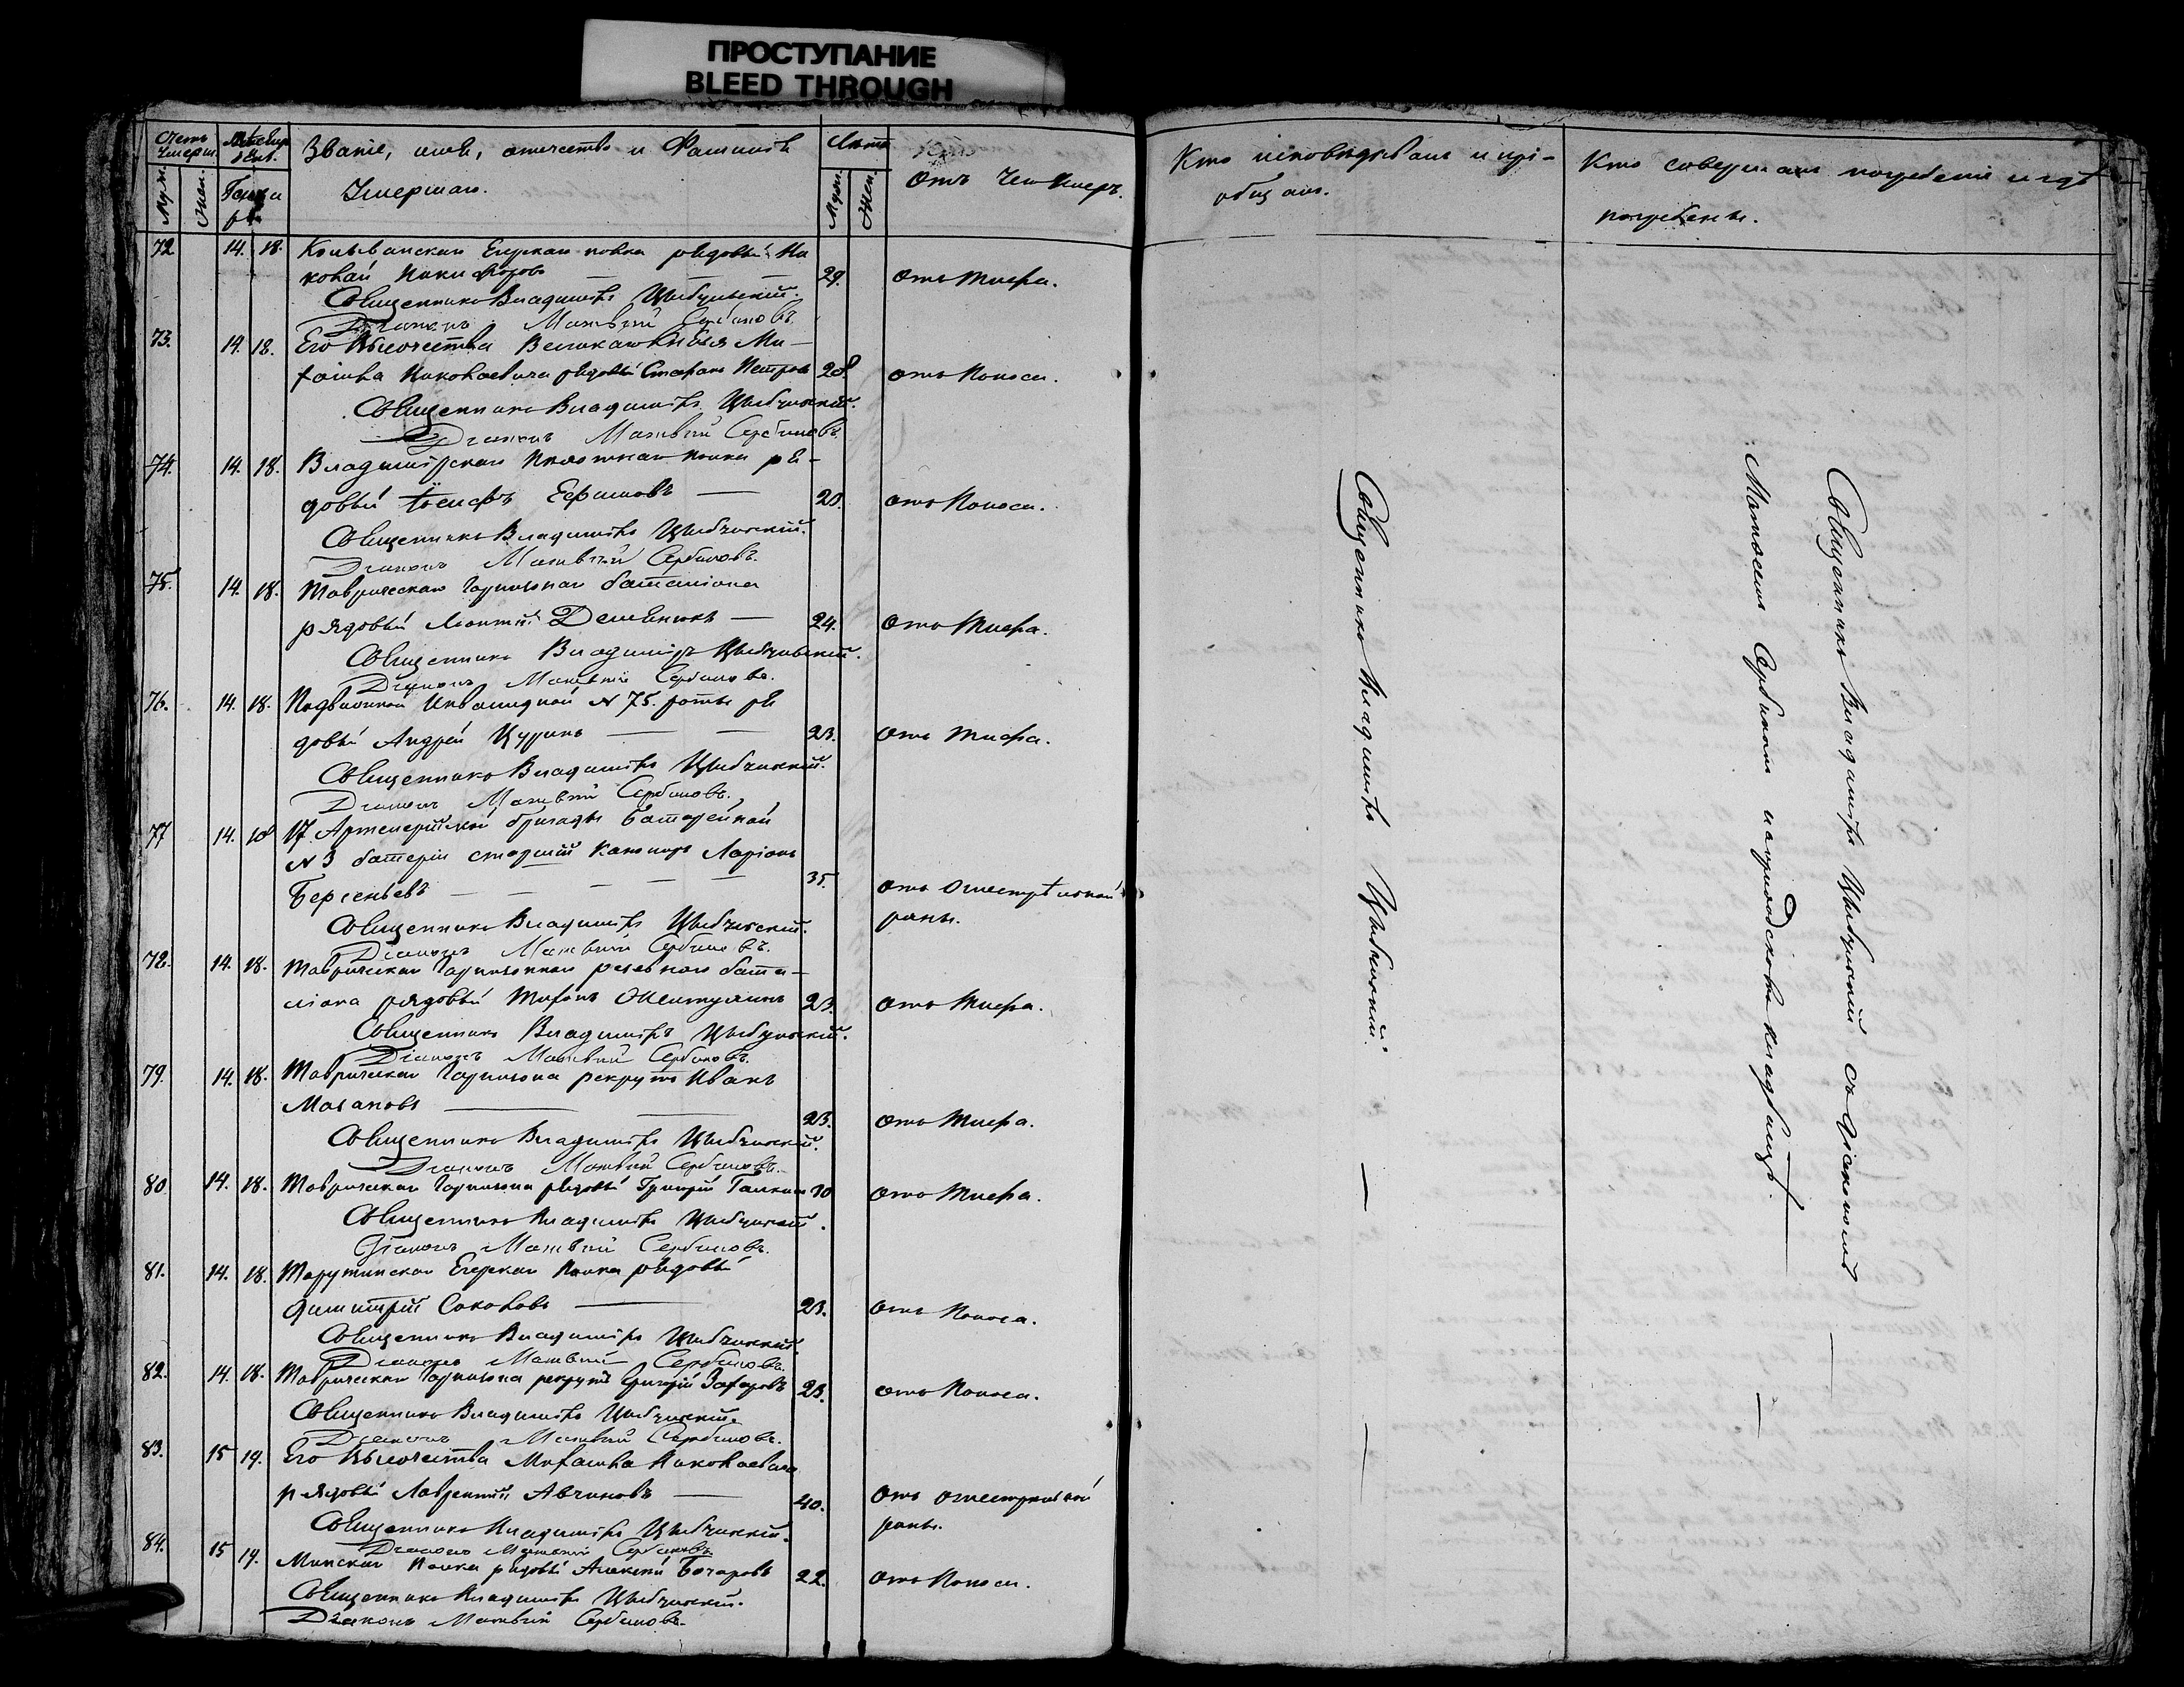 ПРОСТУПАНИЕ
BLEED THROUGH
Счетъ умерш. Мѣсяцъ и день. Званіе, имя, отчество и Фамилія Лѣта
Муж. Жен. Генва ря Умершаго. Муж. Жен. Отъ чего умеръ.
Кто исповѣдывалъ и прі-
общалъ.
Кто совершалъ погребеніе и гдѣ
погребенъ.
72 14. 18. Колыванскаго Егерскаго полка рядовый Ни
колай Никифоровъ 29. Отъ Тифа.
Священникъ Владиміръ Цыбульскій.
Діаконъ Матвѣй Сербиновъ.
73. 14. 18. Его Высочества Великаго Князя Ми-
хаила Николаевича рядовый Стефанъ Петровъ 28. Отъ Поноса.
Священникъ Владиміръ Цыбульскій.
Діаконъ Матвѣй Сербиновъ.
74. 14. 18. Владимірскаго Пѣхотнаго полка ря-
довый Іосифъ Ефимовъ 20. Отъ Поноса.
Священникъ Владиміръ Цыбульскій.
Діаконъ Матвѣй Сербиновъ.
75. 14. 18. Таврическаго Гарнизоннаго баталіона
рядовый Леонтій 24. Отъ Тифа.
Священникъ Владиміръ Цыбульскій.
Діаконъ Матвѣй Сербиновъ.
76. 14. 18. Подвижной Инвалидной № 75. роты ря
довый Андрей Цуринъ 23. Отъ Тифа.
Священникъ Владиміръ Цыбульскій.
Діаконъ Матвѣй Сербиновъ.
77 14. 18 17 Артилерійской бригады батарейной
№ 3 батареи старшій Канониръ Ларіонъ
Берсеньевъ 35. Отъ Огнестрѣльной
раны.
Священникъ Владиміръ Цыбульскій.
Діаконъ Матвѣй Сербиновъ.
78. 14. 18. Таврическаго Гарнизоннаго резервнаго бата-
ліона рядовый Тихонъ 23. Отъ Тифа.
Священникъ Владиміръ Цыбульскій.
Діаконъ Матвѣй Сербиновъ.
79. 14. 18. Таврическаго Гарнизона рекрутъ Иванъ
23. Отъ Тифа.
Священникъ Владиміръ Цыбульскій.
Діаконъ Матвѣй Сербиновъ.
80 14. 18. Таврическаго Гарнизона рядовый Григорій Галкинъ 30 Отъ Тифа.
Священникъ Владиміръ Цыбульскій.
Діаконъ Матвѣй Сербиновъ.
81. 14. 18. Тарутинскаго Егерскаго Полка рядовый
Димитрій Соколовъ 23. Отъ Поноса.
Священникъ Владиміръ Цыбульскій.
Діаконъ Матвѣй Сербиновъ.
82. 14. 18. Таврическаго Гарнизона рекрутъ Григорій Захаровъ 23. Отъ Поноса.
Священникъ Владиміръ Цыбульскій.
Діаконъ Матвѣй Сербиновъ.
83. 15 19. Его Высочества Михаила Николаевича
рядовый Лаврентій 40. Отъ огнестрѣльной
раны.
Священникъ Владиміръ Цыбульскій.
Діаконъ Матвѣй Сербиновъ.
84. 15 19. Минскаго Полка рядовый Алексѣй Бочаровъ 22. Отъ Поноса.
Священникъ Владиміръ Цыбульскій.
Діаконъ Матвѣй Сербиновъ.
Священникъ Владиміръ Цыбульскій.
Священникъ Владиміръ Цыбульскій съ Діакономъ
Матвеемъ Сербиновымъ на городскомъ кладбищѣ.